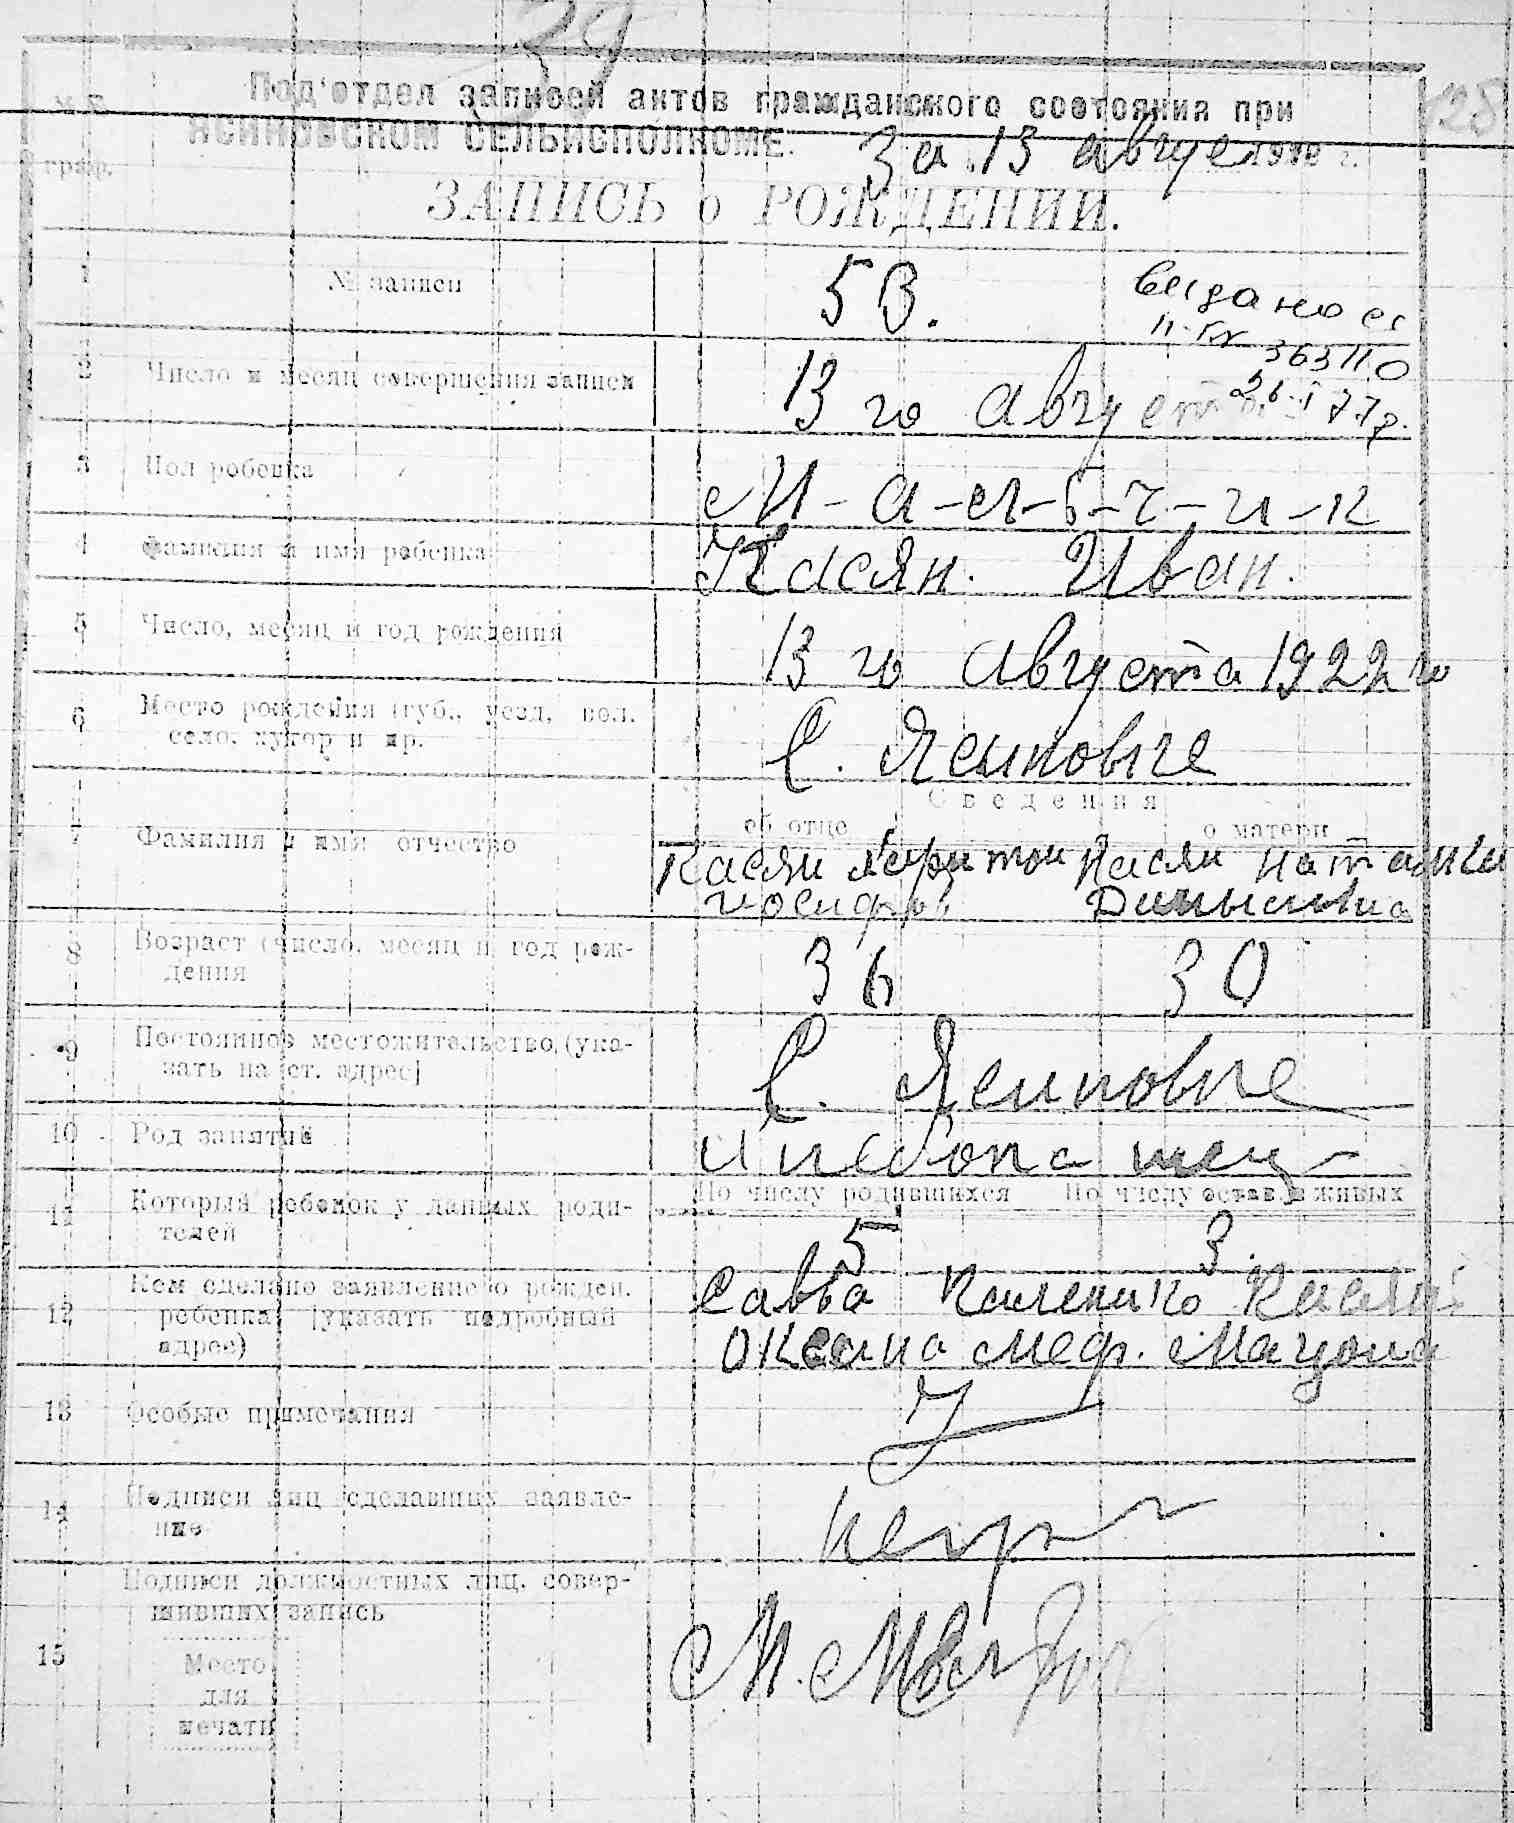 39
128
№№
Под'отдел записей актов гражданского состояния при
граф.
ЯСИНОВСКОМ СЕЛЬИСПОЛКОМЕ.
За 13 авгус 192 г.
ЗАПИСЬ о РОЖДЕНИИ.
1 № записи 53.
выдано св
363110
77г.
2 Число и месяц совершения записи 13 го августа
3 Пол ребенка М-а-л-ь-ч-и-к
4 Фамилия и имя ребенка Касян. Иван.
5 Число, месяц и год рождения 13 го августа 1922 го
6 Место рождения (губ., уезд, вол. село, хутор и др. С. Ясиновке
Сведения
об отце о матери
7 Фамилия и имя отчество Касян Касян Наталия
8 Возраст (число, месяц и год рождения 36 30
9 Постоянное местожительство (указать на ст. адрес) С. Ясиновке
10 Род занятий Хлебопашец
По числу родившихся По числу остав. в живых
11 Который ребенок у данных родителей 5 3.
12 Кем сделано заявление о рожден. ребенка (указать подробный адрес) Савва Касян
Оксана Меф. Мацона
13 Особые примечания
14 Подписи лиц сделавших заявление
15 Подписи должностных лиц, совершивших запись
Место
для
печати